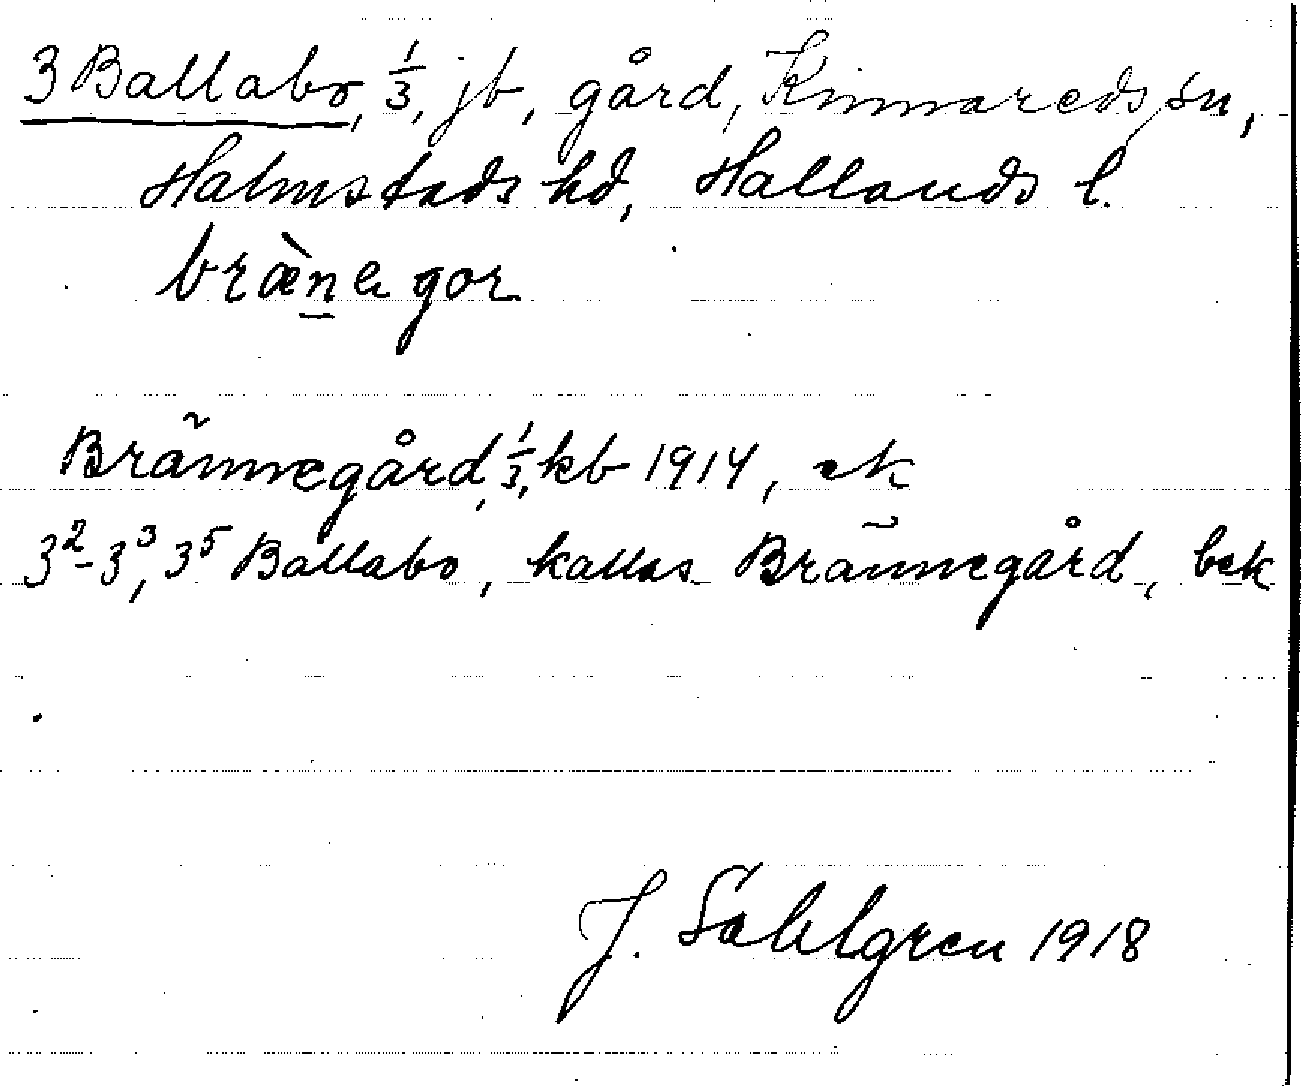 3 Ballabo, 1/3, jb, gård, Kinnareds sn,
Halmstads hd, Hallands l.
bræ̀n̲a gor
Brännegård, 1/3, kb 1914, ek
3²-3³, 3⁵ Ballabo, kallas Brännegård, bek
J. Sahlgren 1918